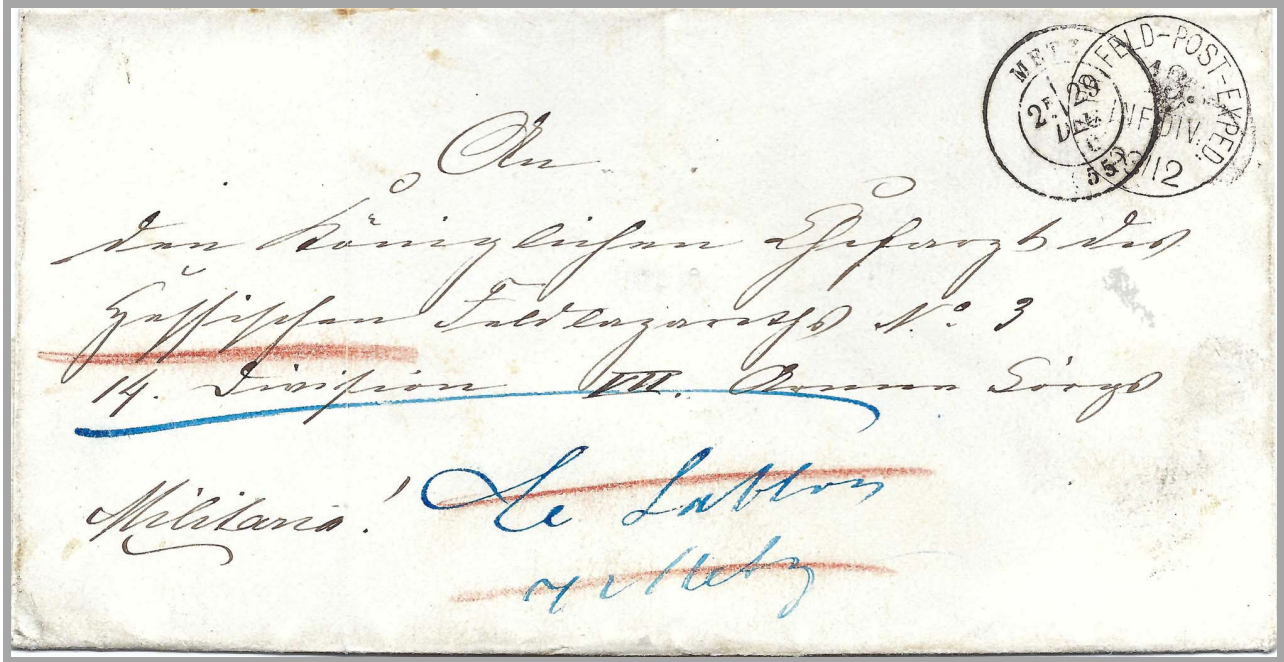 METZ
2E
DEC.
FELD-POST-EXPED.
INF.DIV.
An
den Königlichen Chefarzt des
Hessischen Feldlazareths No. 3
14. Division VII. Armee Corps
Militaria!
Le Sablon
Metz